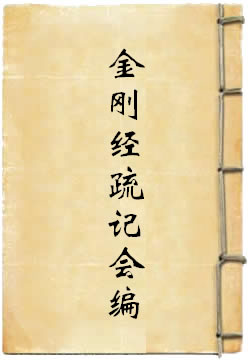 金刚经疏记会编